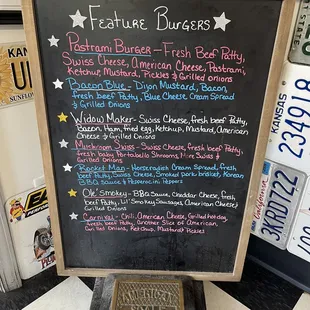 Feature Burgers
Pastrami Burger - Fresh Beef Patty,
Swiss Cheese, American Cheese, Pastrami,
Ketchup, Mustard, Pickles & Grilled onions
Bacon Blue - Dijon Mustard, Bacon,
fresh Beef Patty, Blue Cheese Spread
& Grilled Onions
Widow Maker - Swiss Cheese, fresh beef Patty,
Bacon, Ham, fried egg, Ketchup, Mustard, American
Cheese & Grilled Onions
Mushroom Swiss - Swiss Cheese, fresh beef Patty,
fresh baby Portabella Shrooms, More Swiss &
Grilled Onions
Rocket Man - Horseradish Cream Spread, fresh
beef Patty, Swiss Cheese, Smoked pork brisket, Korean
B.B.Q. Sauce & Pepperoncini Peppers
Ole' Smokey - BBQ Sauce, Cheddar Cheese, fresh
beef Patty, Lil' Smokey Sausages, American Cheese &
Grilled Onions
Carnival - Chili, American Cheese, Grilled hotdog,
fresh beef Patty, Swiss Cheese, Another Grilled
Onions, Ketchup, Mustard & Pickles
KANSAS
2349
SUNFLOWER